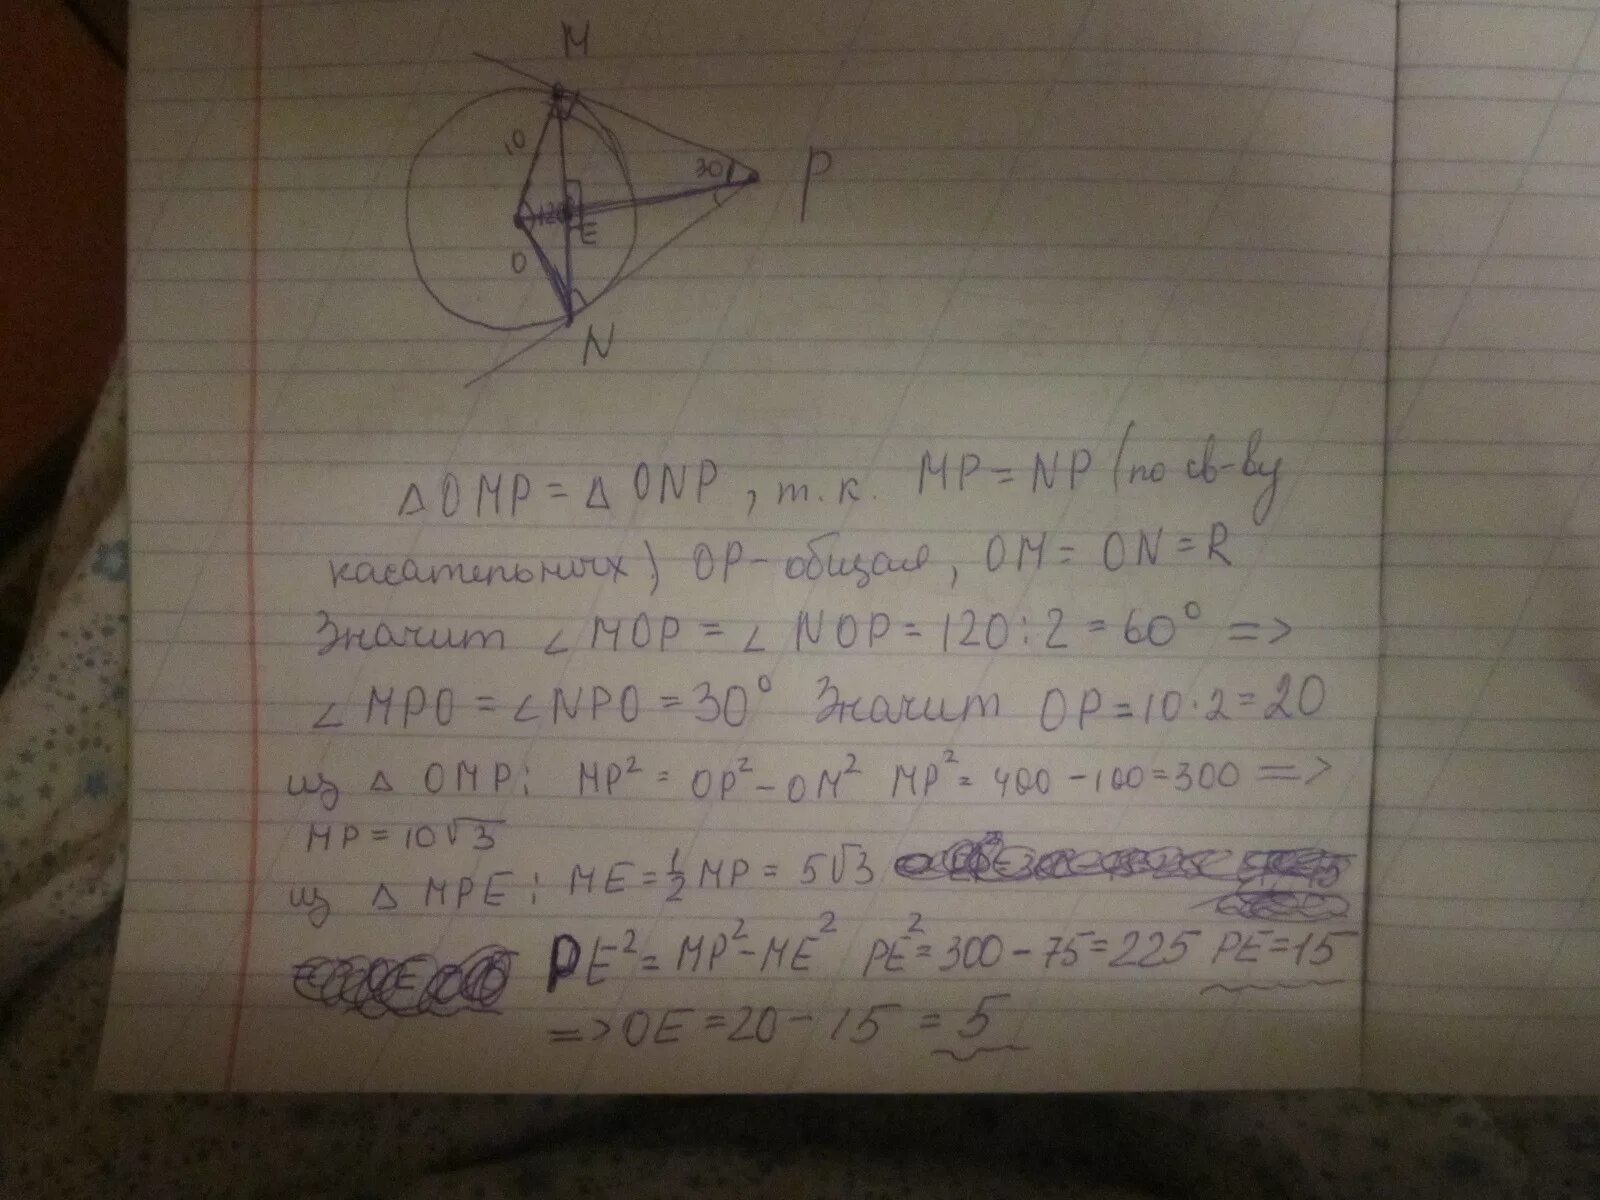 M
10
30
P
120
E
O
N
△OMP = △ONP, т.к. MP = NP (по св-ву
касательных) OP - общая, OM = ON = R
Значит ∠MOP = ∠NOP = 120:2 = 60° =>
∠MPO = ∠NPO = 30° Значит OP = 10·2 = 20
из △OMP: MP² = OP² - OM² MP² = 400 - 100 = 300 =>
MP = 10√3
из △MPE: ME = ½MP = 5√3
PE² = MP² - ME² PE² = 300 - 75 = 225 PE = 15
=> OE = 20 - 15 = 5